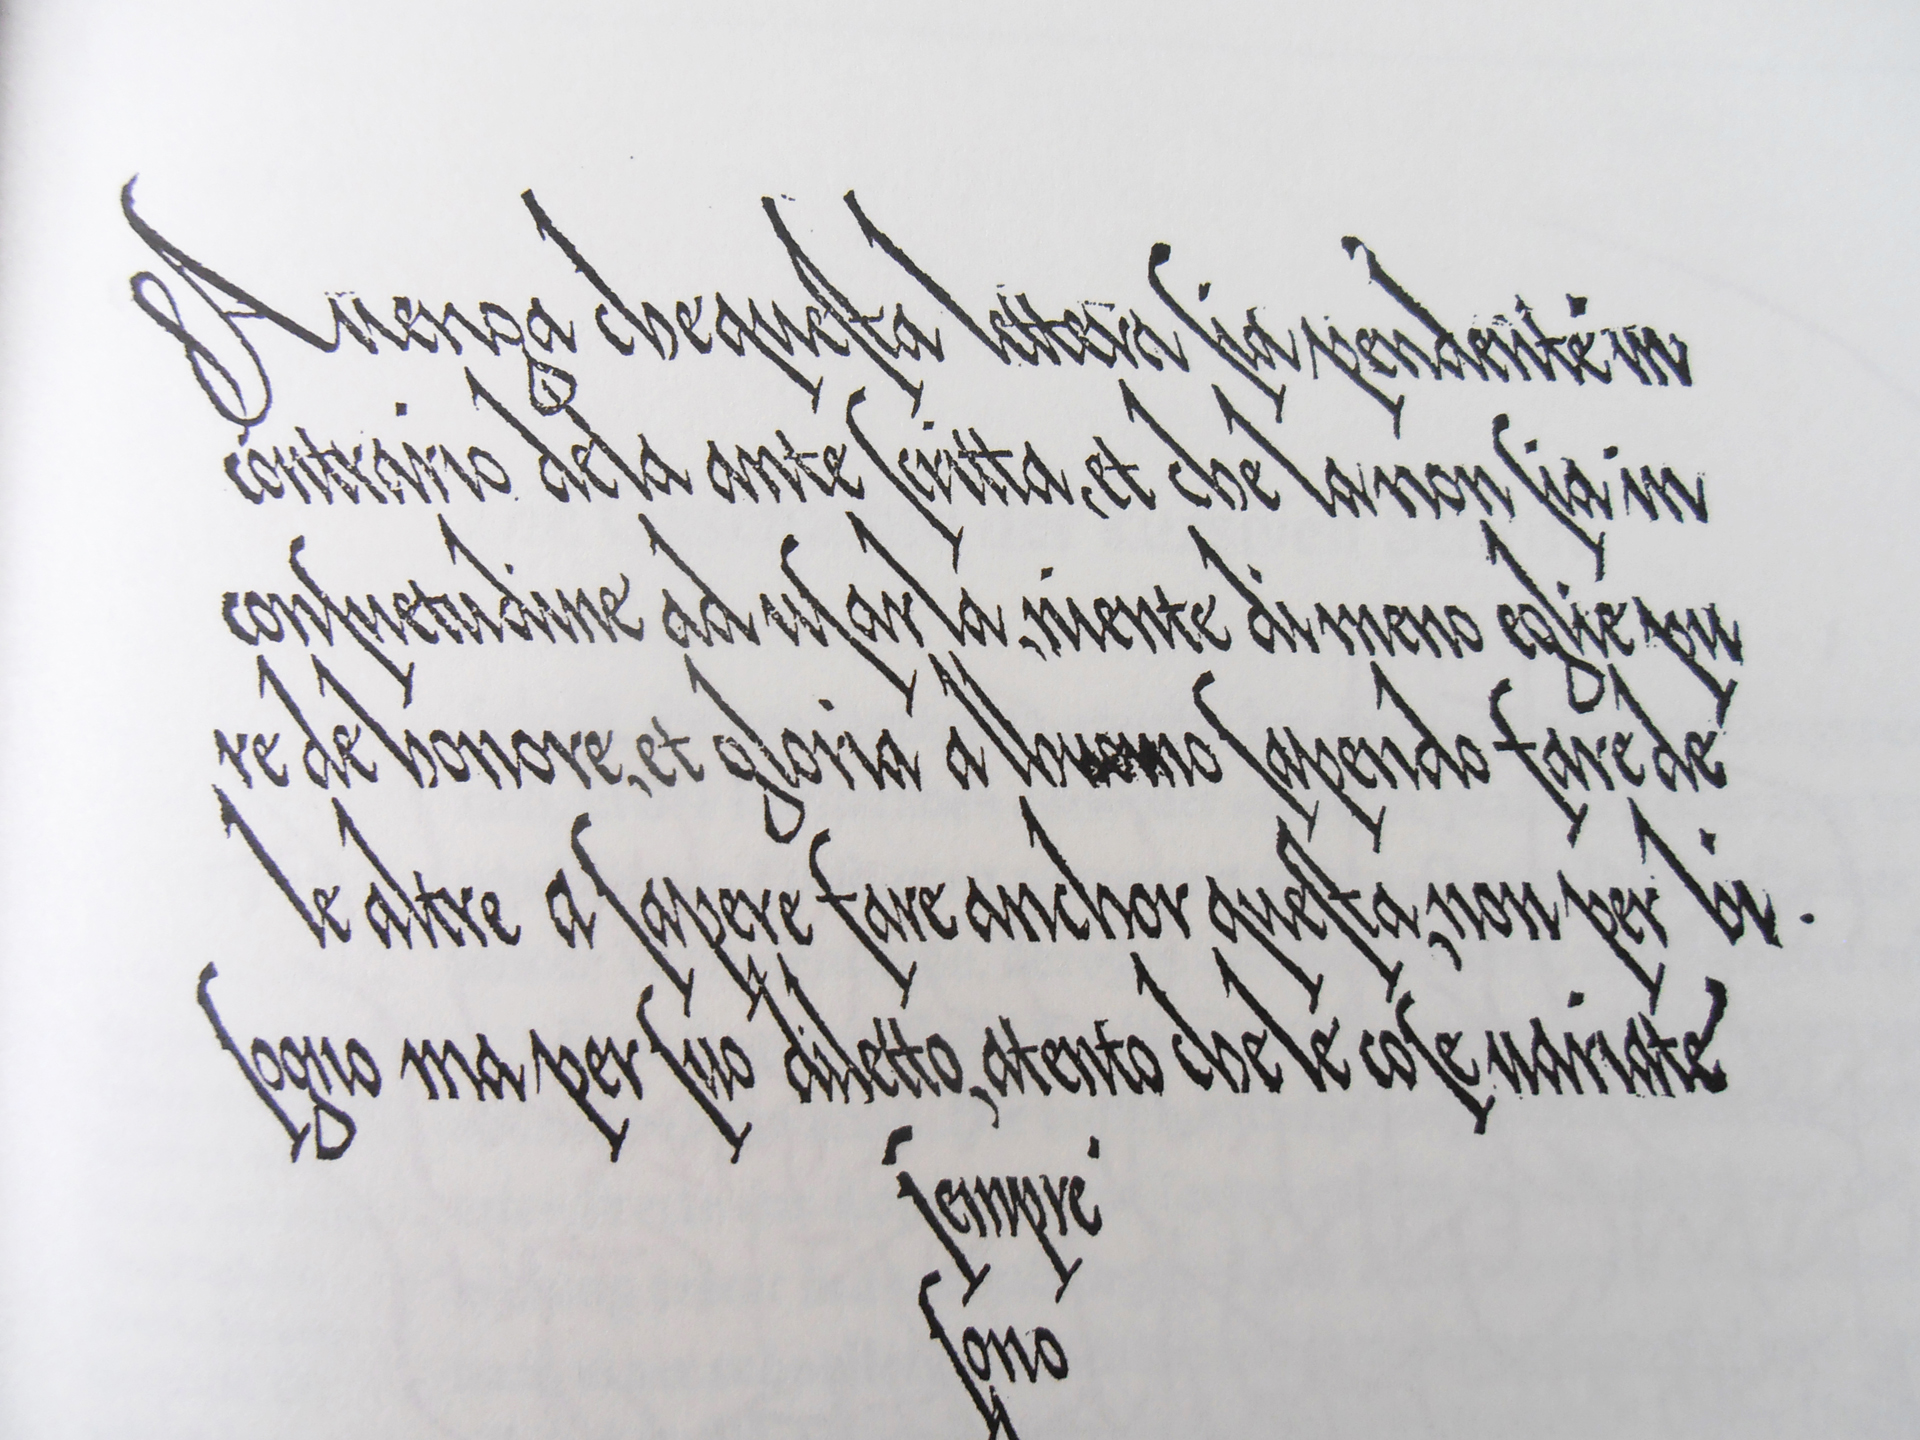 Auenga che questa lettera sia pendente in
contrario dela ante scritta, et che la non sia in
consuetudine ad usarla, niente di meno eglie pu
re de honore, et gloria allhuomo sapendo fare de
le altre a sapere fare anchor questa, non per bi.
sogno ma per suo diletto, atento che le cose uariate
sempre
sono